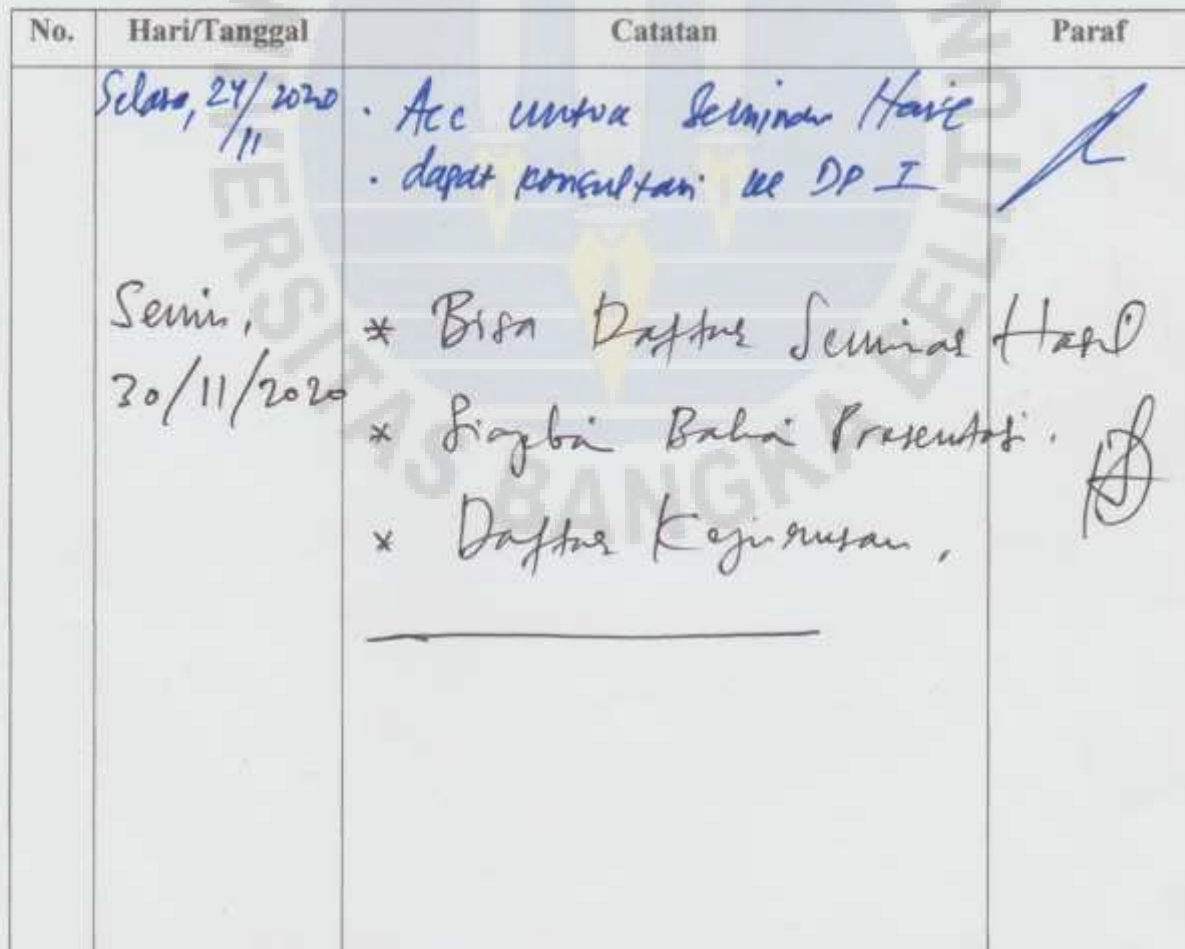 No. Hari/Tanggal Catatan Paraf
Selasa, 24/11 2020 . Acc untuk Seminar Hasil
. dapat konsultasi ke DP I
Senin, * Bisa Daftar Seminar Hasil
30/11/2020
* Siapkan Bahan Presentasi.
* Daftar Kejurusan.
UNIVERSITAS BANGKA BELITUNG